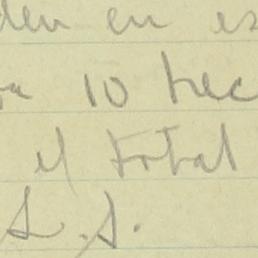 den en es
a 10 hec
el total
S. S.